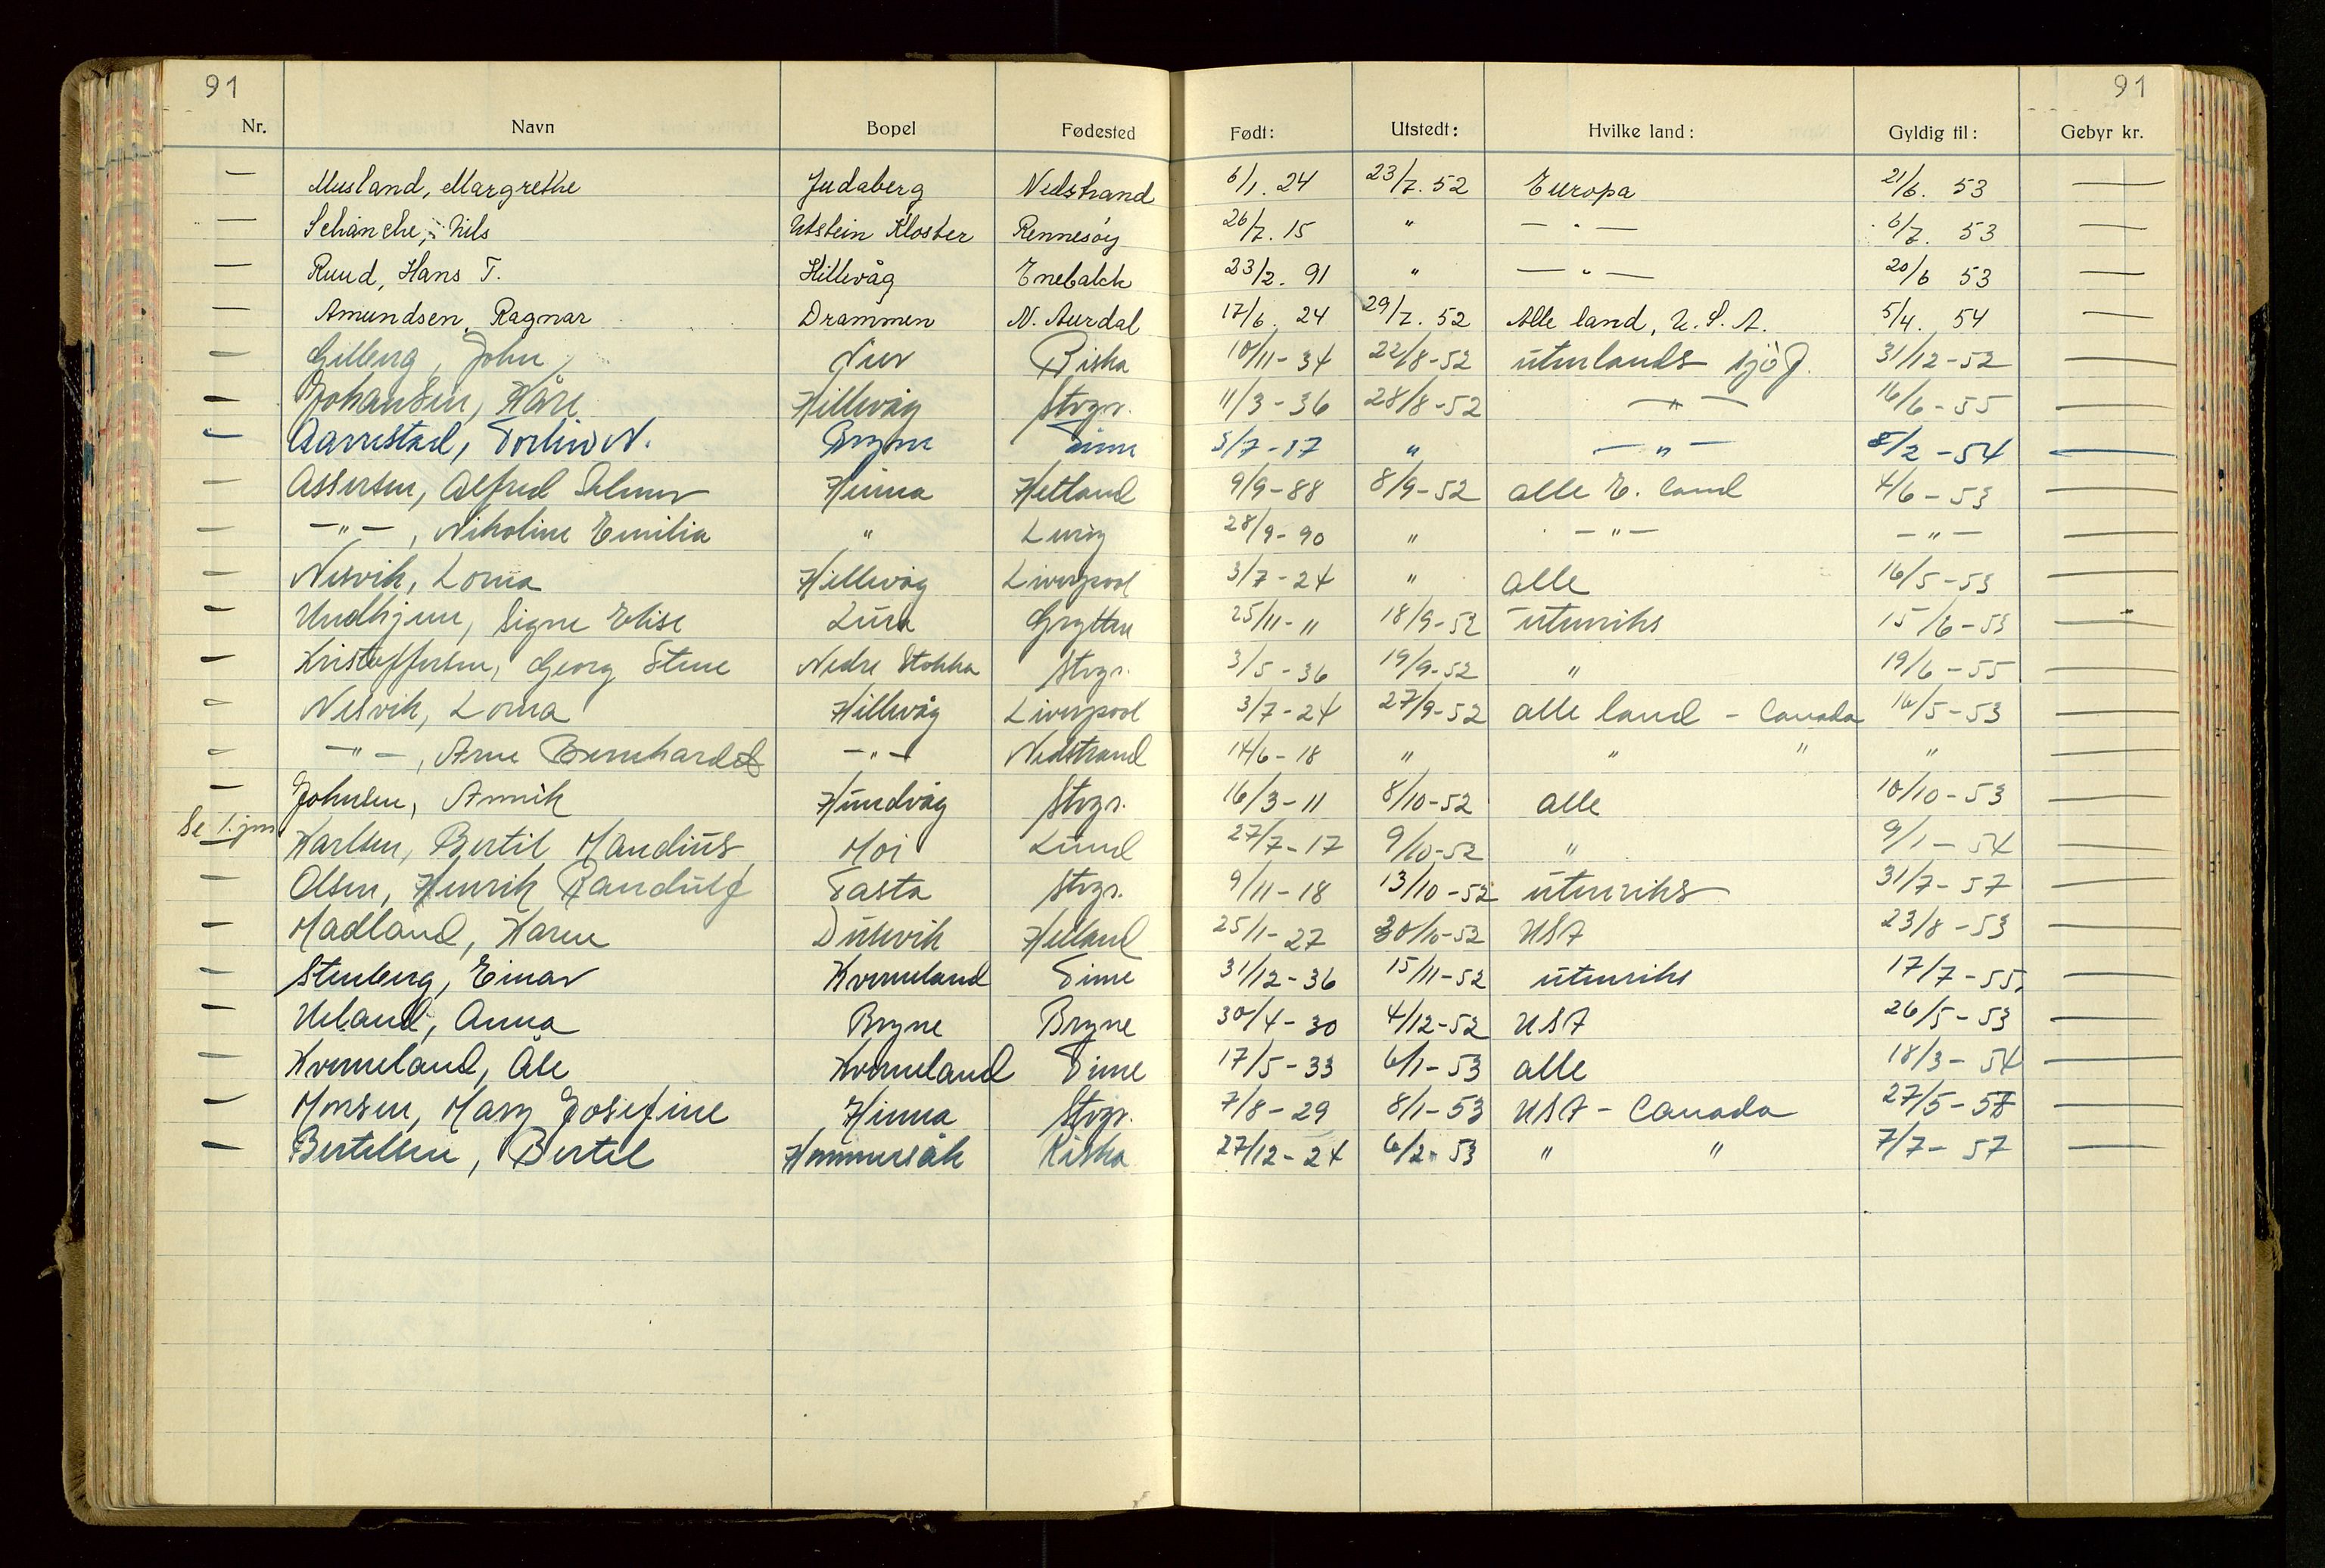 91 91
Nr. Navn Bopel Fødested Født: Utstedt: Hvilke land: Gyldig til: Gebyr kr.
— Musland, Margrethe Judaberg Nedstrand 6/1. 24 23/7. 52 Europa 21/6. 53 —
— Schanche, Nils Utstein Kloster Rennesøy 26/7. 15 " — " — 6/7. 53 —
— Ruud, Hans T. Hillevåg Enebakk 23/2. 91 " — " — 20/6 53 —
— Amundsen, Ragnar Drammen N. Aurdal 17/6. 24 29/7. 52 Alle land, U.S.A. 5/4. 54 —
— Gilberg, John Riska 10/11-34 22/8-52 utenlands sjöf. 31/12-52 —
— Johansen, Kåre Hillevåg Stvgr. 11/3-36 28/8-52 — " — 16/6-55 —
— Aarrestad, N. Bryne Time 3/7-17 " — " — 8/2-54 —
— Assersen, Alfred Hinna Hetland 9/9-88 8/9-52 alle E. land 4/6-53 —
— — " — , Nikoline Emilia " 28/9-90 " — " — — " — —
— Nesvik, Lorna Hillevåg Liverpool 3/7-24 " alle 16/5-53 —
— Undhjem, Signe Elise Lura Grytten 25/11-11 18/9-52 utenriks 15/6-53 —
— Kristoffersen, Georg Stene Nedre Stokka Stvgr. 3/5-36 19/9-52 " 19/6-55 —
— Nesvik, Lorna Hillevåg Liverpool 3/7-24 27/9-52 alle land - Canada 16/5-53 —
— — " — , Arne Bernhard — " — Nedstrand 14/6-18 " " " " —
— Johnsen, Annik Hundvåg Stvgr. 16/3-11 8/10-52 alle 10/10-53 —
Se Karlsen, Bertil Mandius Moi Lund 27/7-17 9/10-52 " 9/1-54 —
— Olsen, Henrik Randulf Tasta Stvgr. 9/11-18 13/10-52 utenriks 31/7-57 —
— Madland, Karen Dusevik Helland 25/1-27 30/10-52 USA 23/8-53 —
— Stenberg, Einar Kverneland Time 31/12-36 15/11-52 utenriks 17/7-55. —
— Ueland, Anna Bryne Bryne 30/4-30 4/12-52 USA 26/5-53 —
— Kverneland, Åse Kverneland Time 17/5-33 6/1-53 alle 18/3-54 —
— Monsen, Mary Josefine Hinna Stvgr. 7/8-29 8/1-53 USA - Canada 27/5-58 —
— Bertelsen, Bertel Hommersåk Riska 27/12-24 6/2-53 " " 7/7-57 —